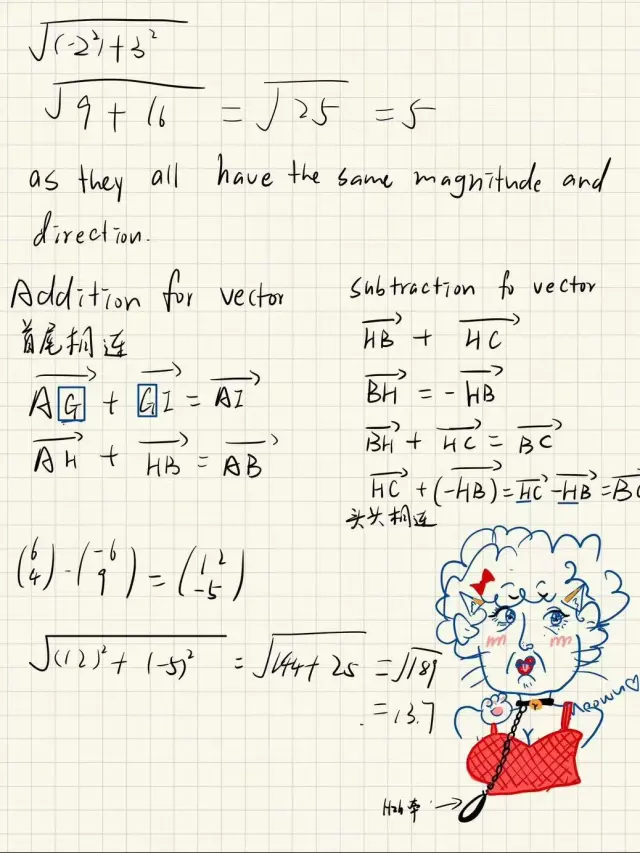 √((-2²)+3²)
√(9+16) = √25 = 5
as they all have the same magnitude and
direction.
Addition for vector
首尾相连
AG + GI = AI
AH + HB = AB
subtraction fo vector
HB + HC
BH = -HB
BH + HC = BC
HC + (-HB) = HC - HB = BC
头头相连
(6 4) - (-6 9) = (12 -5)
√((12)² + (-5)²) = √(144+25) = √189
= 13.7
Meowu♡